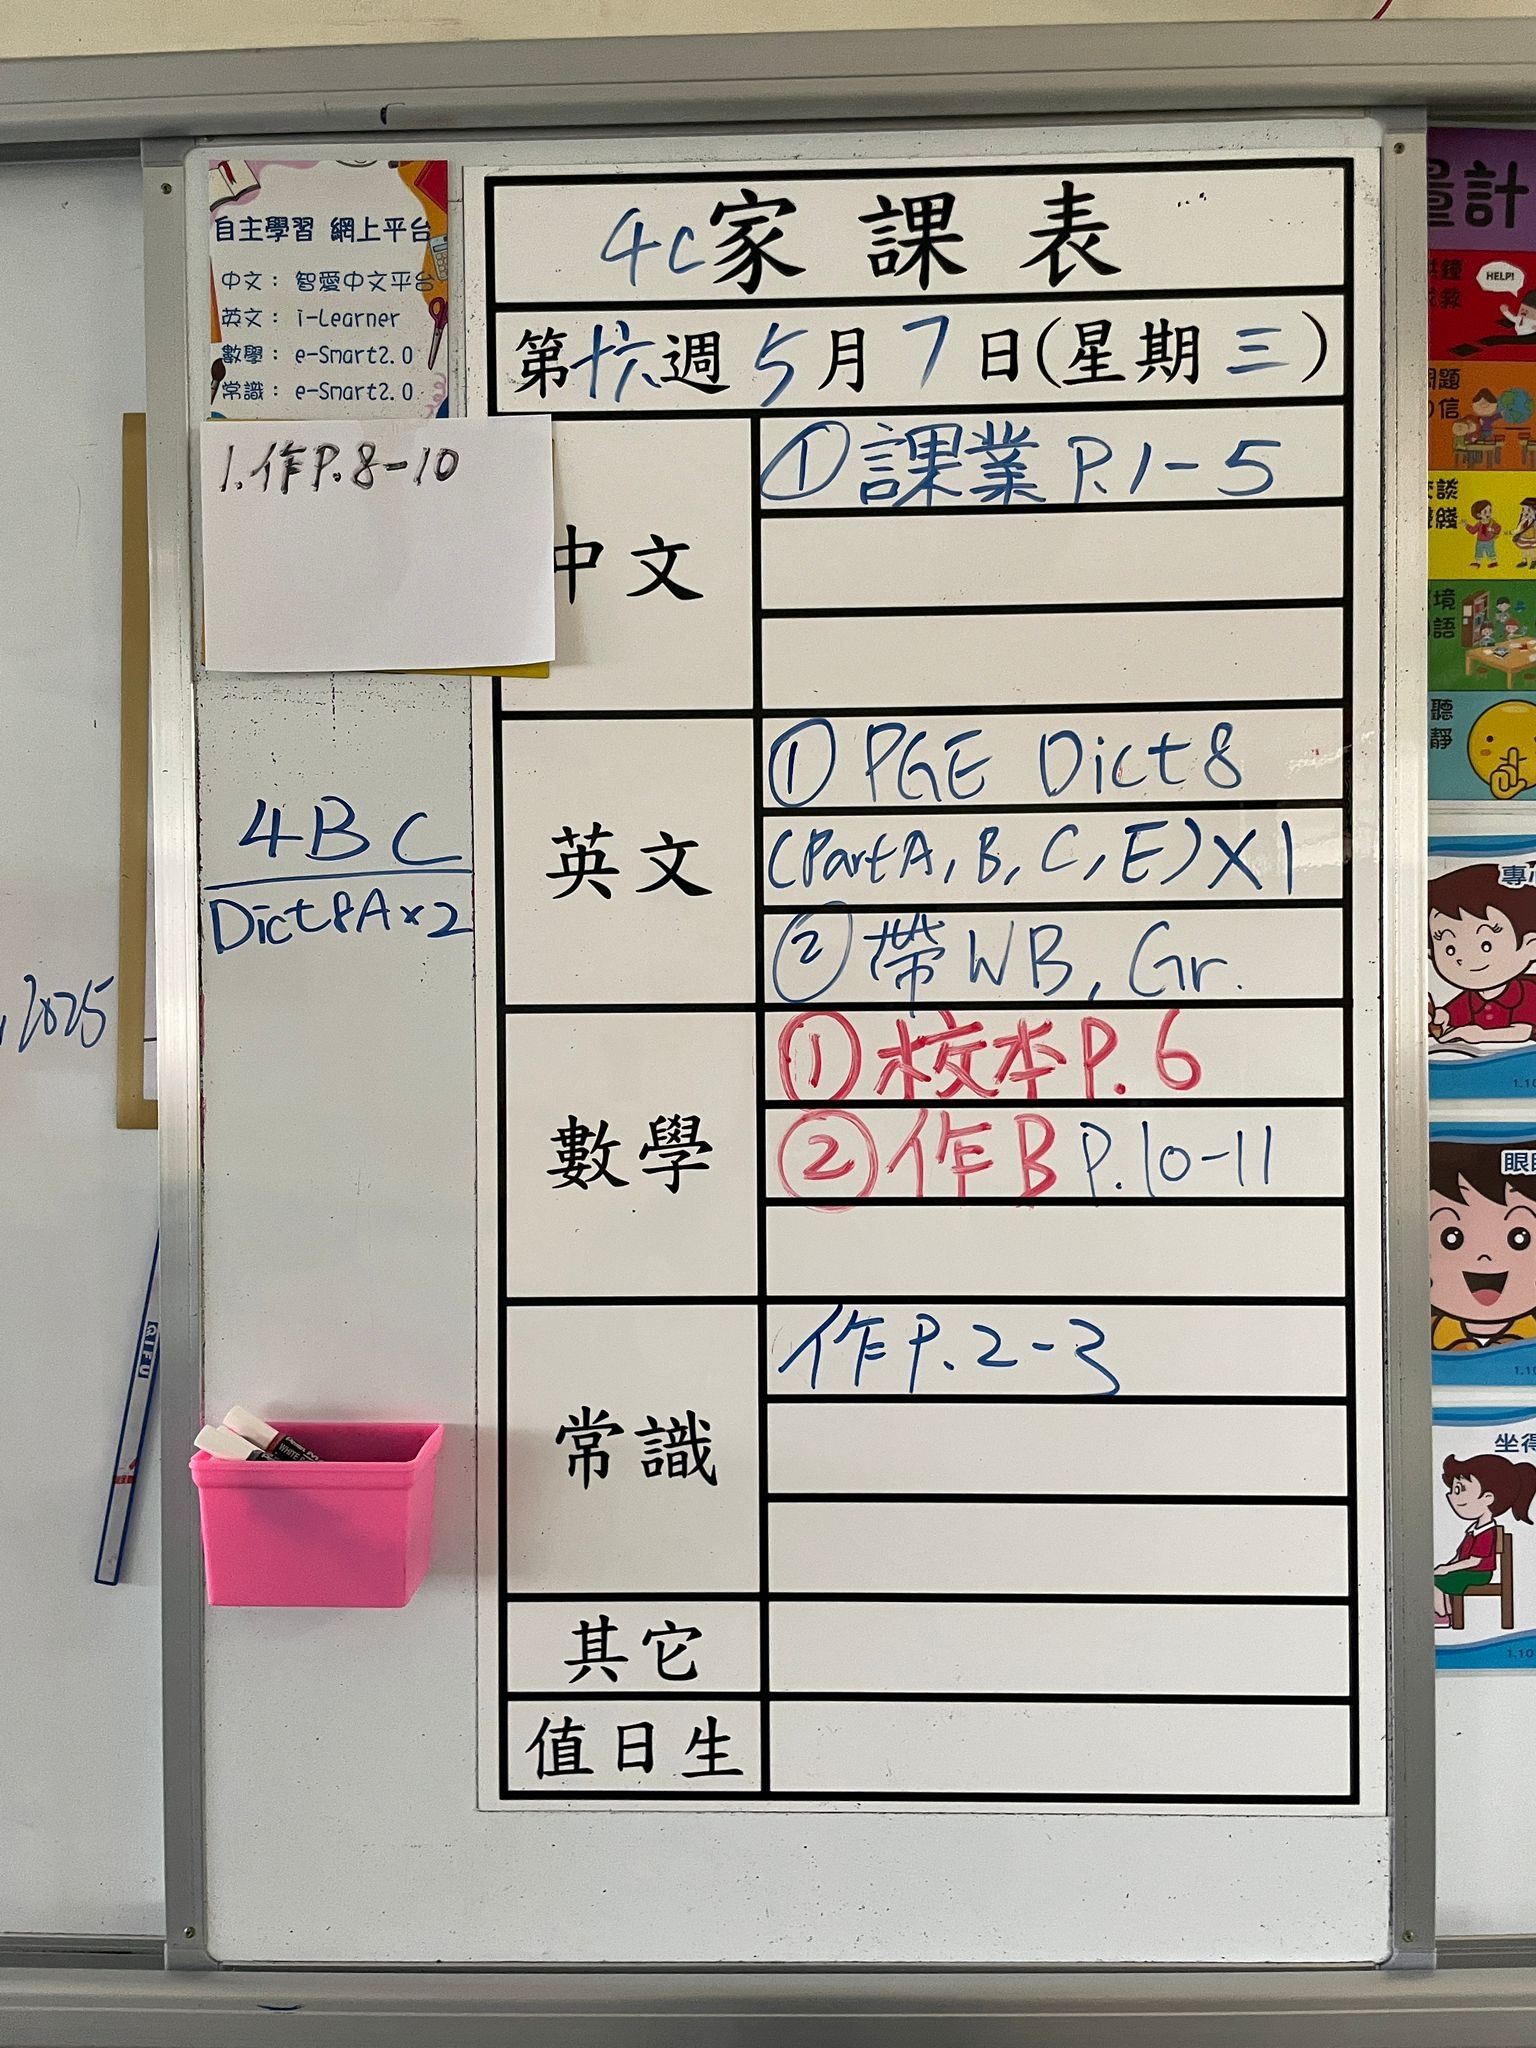 自主學習 網上平台
中文： 智愛中文平台
英文： i-Learner
數學： e-Smart2.0
常識： e-Smart2.0
1.作P.8-10
4BC
Dict8A×2
2025
QIFU
4C家課表
第十六週 5月7日(星期三)
中文
①課業 P.1-5
英文
① PGE Dict 8
(Part A, B, C, E)×1
② 帶WB, Gr.
數學
①校本P.6
②作B P.10-11
常識
作P.2-3
其它
值日生
量計
HELP!
問題
交談
聽
靜
專心
1.10
1.10
坐得
1.10